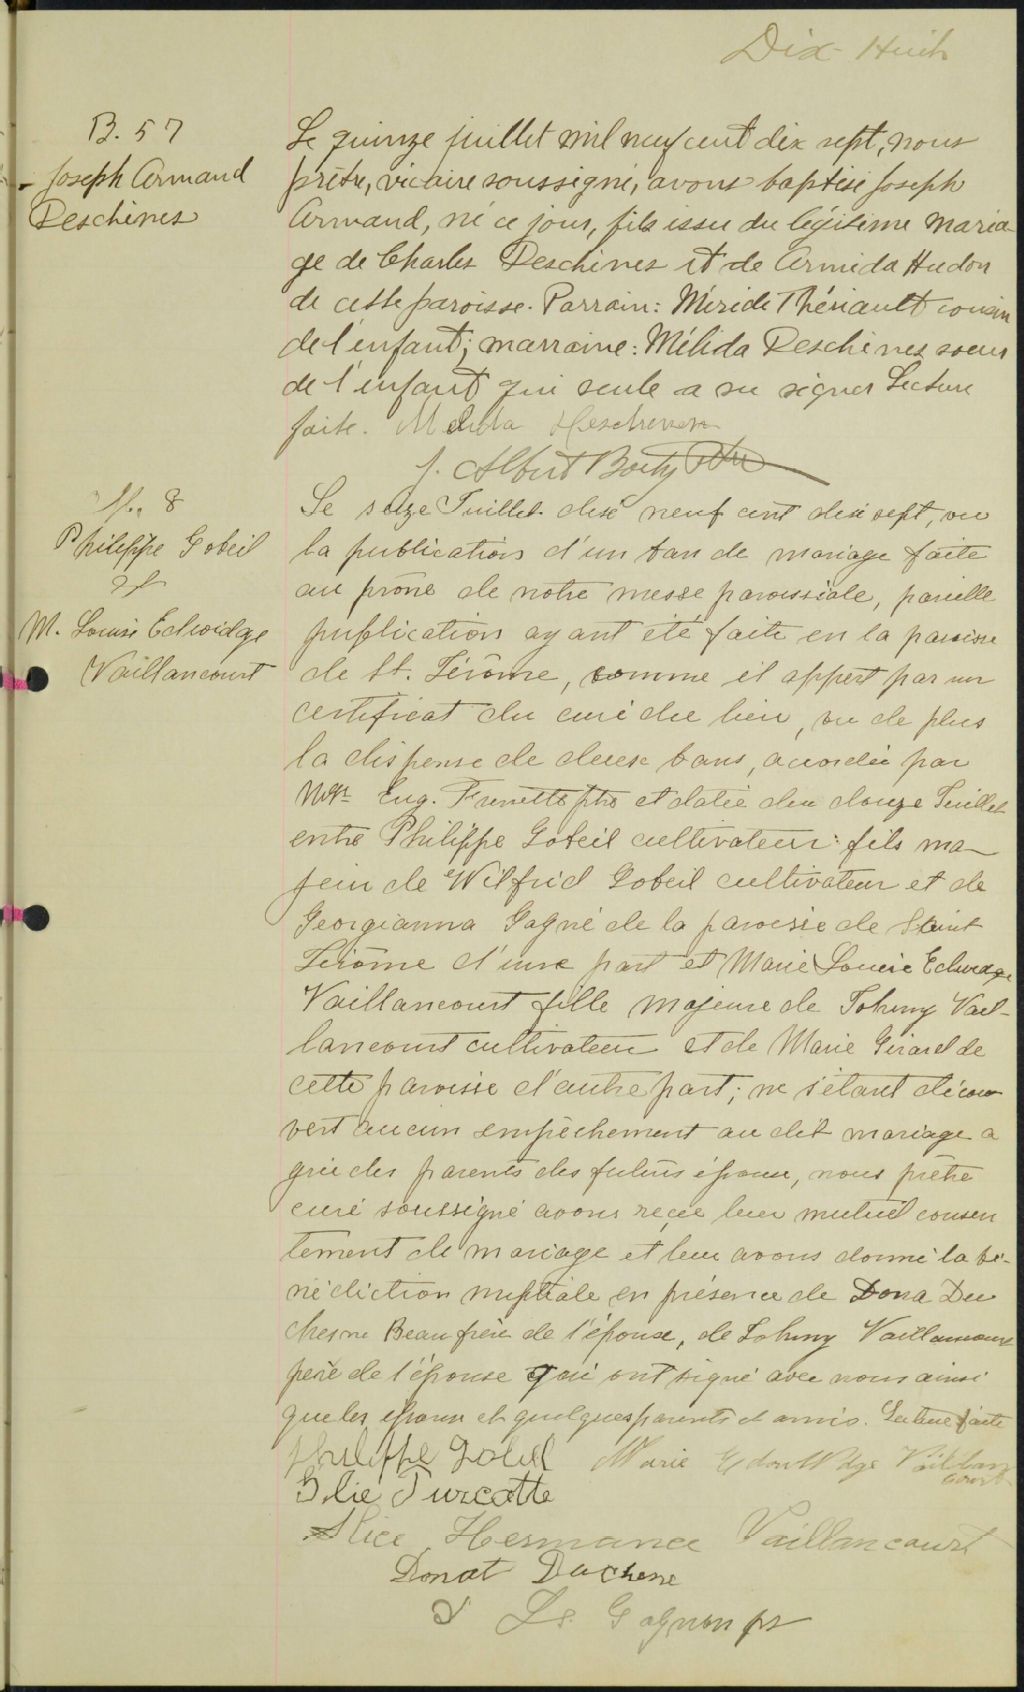 Dix-Huit
B. 57
Joseph Armand
Deschênes
Le quinze juillet mil neuf cent dix sept, nous
prêtre, vicaire soussigné, avons baptisé Joseph
Armand, né ce jour, fils issu du légitime maria-
ge de Charles Deschênes et de Armida Hudon
de cette paroisse. Parrain: Méride Thériault cousin
de l'enfant; marraine: Mélida Deschênes soeur
de l'enfant qui seule a su signer Lecture
faite. Melida Deschenes
J. Albert Boily Ptre
M. 8
Philippe Gobeil
et
M. Louise Edwidge
Vaillancourt
Le seize Juillet dix neuf cent dix sept, vu
la publication d'un ban de mariage faite
au prône de notre messe paroissiale, pareille
publication ayant été faite en la paroisse
de St. Jérôme, comme il appert par un
certificat du curé du lieu, vu de plus
la dispense de deux bans, accordée par
Mgr Eug. Frenette ptre et datée du douze Juillet
entre Philippe Gobeil cultivateur: fils ma-
jeur de Wilfrid Gobeil cultivateur et de
Georgianna Gagné de la paroisse de Saint
Jérôme d'une part et Marie Louise Edwidge
Vaillancourt fille majeure de Johnny Vail-
lancourt cultivateur et de Marie Girard de
cette paroisse d'autre part; ne s'étant décou
vert aucun empêchement au dit mariage a
gré des parents des futurs époux, nous prêtre
curé soussigné avons reçu leur mutuel consen
tement de mariage et leur avons donné la bé-
nédiction nuptiale en présence de Dona Du
chesne Beau frère de l'épouse, de Johnny Vaillancourt
père de l'épouse qui ont signé avec nous ainsi
que les époux et quelques parents et amis. Lecture faite
Philippe Gobeil Marie Edouwidge Vaillan
court
Elie Turcotte
Alice Hermance Vaillancourt
Donat Duchesne
Ls. Gagnon ptr